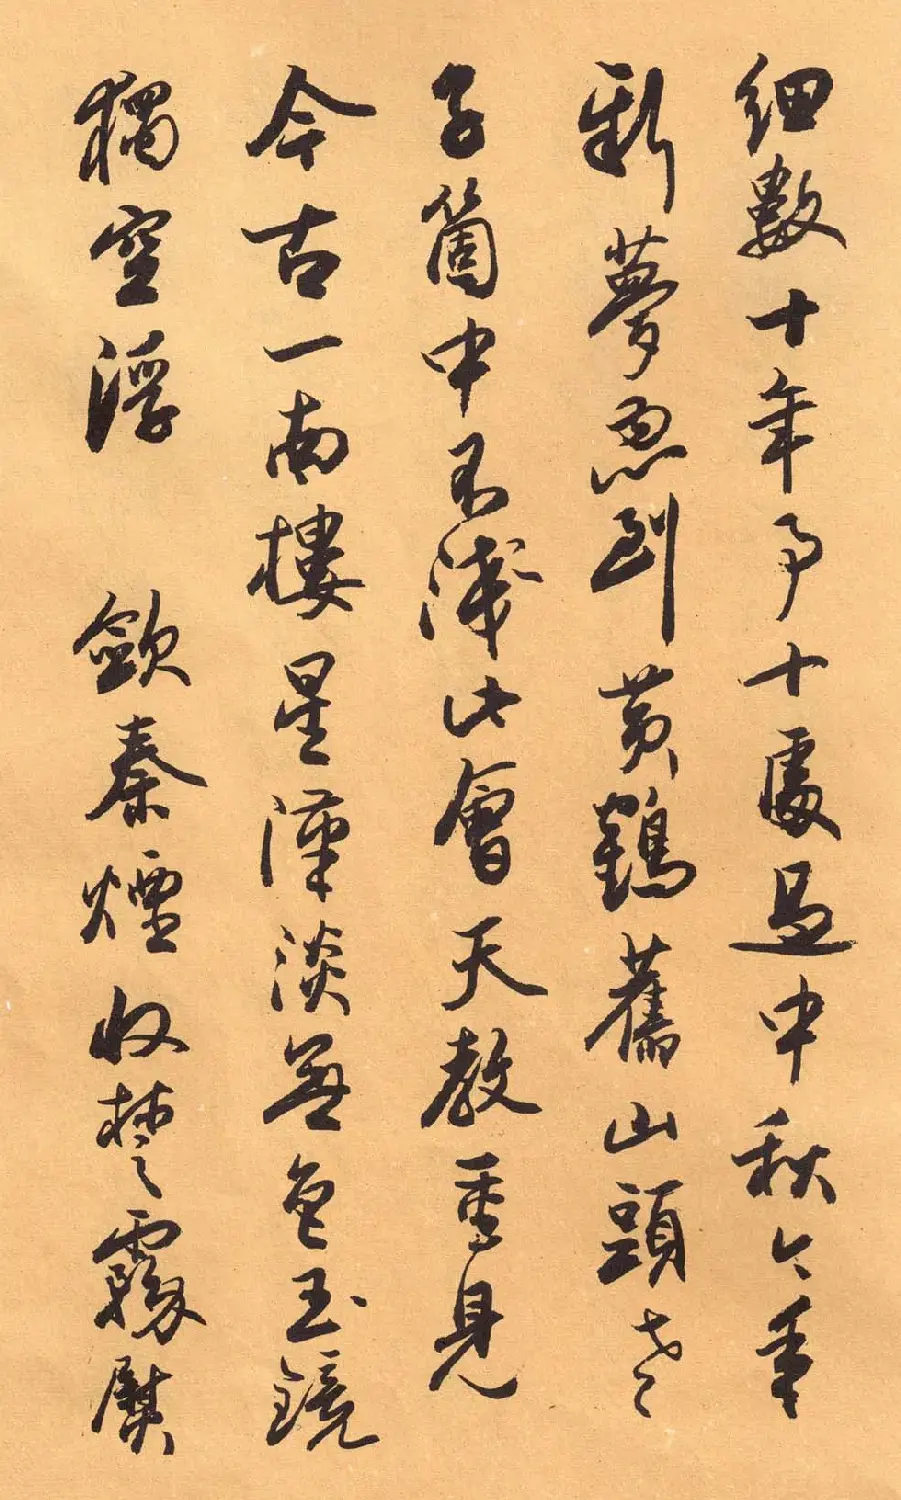 細數十年事十處過中秋今年
新夢忽到黃鶴舊山頭老
子箇中不淺此會天教重見
今古一南樓星漢淡無色玉鏡
獨空浮 歛秦煙收楚霧熨